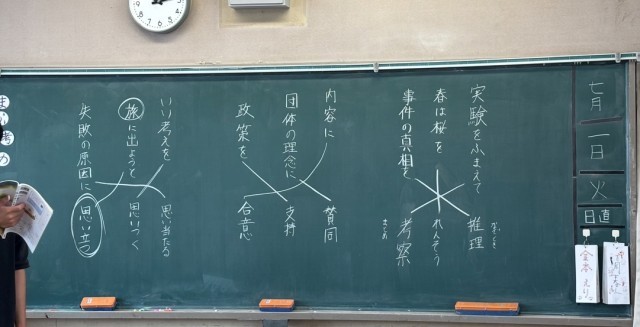 七月
一日
火
日直
実験をふまえて
春は桜を
事件の真相を
推理
れんそう
考察
内容に
団体の理念に
政策を
賛同
支持
合意
いい考えを
旅に出ようと
失敗の原因に
思い当たる
思いつく
思い立つ